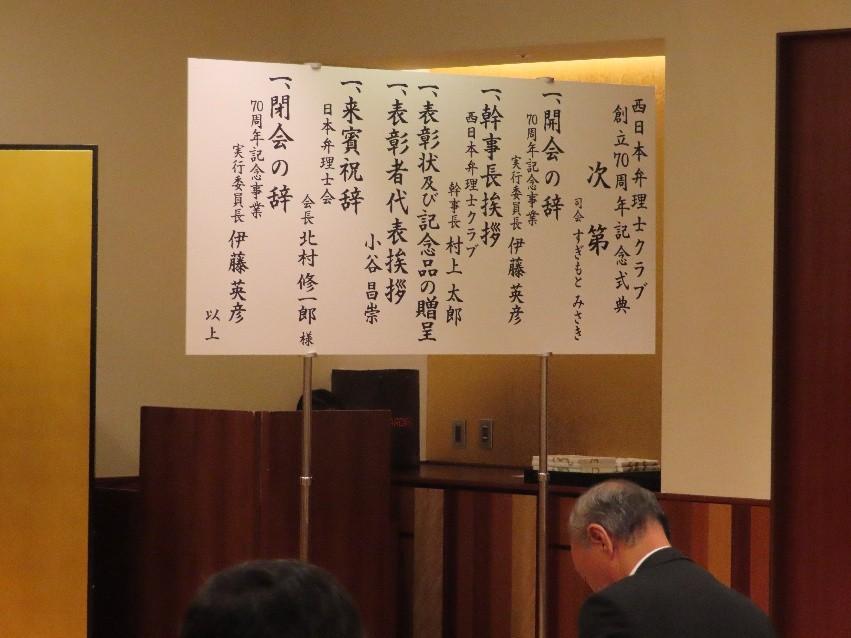 西日本弁理士クラブ
創立70周年記念式典
次第
司会 すぎもと みさき
一、開会の辞
70周年記念事業
実行委員長 伊藤 英彦
一、幹事長挨拶
西日本弁理士クラブ
幹事長 村上 太郎
一、表彰状及び記念品の贈呈
一、表彰者代表挨拶
小谷 昌崇
一、来賓祝辞
日本弁理士会
会長 北村 修一郎 様
一、閉会の辞
70周年記念事業
実行委員長 伊藤 英彦
以上